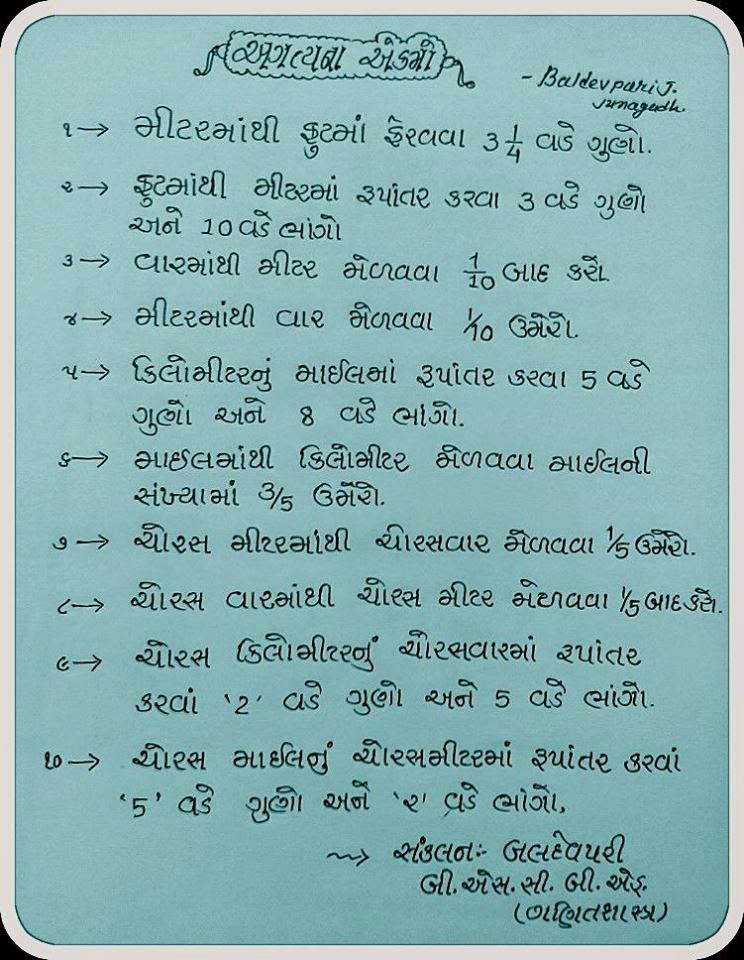 અગત્યના એકમો
- Baldevpari J.
Junagadh.
૧→ મીટરમાંથી ફુટમાં ફેરવવા 3 1/4 વડે ગુણો.
૨→ ફુટમાંથી મીટરમાં રૂપાંતર કરવા 3 વડે ગુણો
અને 10 વડે ભાંગો
૩→ વારમાંથી મીટર મેળવવા 1/10 બાદ કરો.
૪→ મીટરમાંથી વાર મેળવવા 1/10 ઉમેરો.
૫→ કિલોમીટરનું માઈલમાં રૂપાંતર કરવા 5 વડે
ગુણો અને 8 વડે ભાંગો.
૬→ માઈલમાંથી કિલોમીટર મેળવવા માઈલની
સંખ્યામાં 3/5 ઉમેરો.
૭→ ચોરસ મીટરમાંથી ચોરસવાર મેળવવા 1/5 ઉમેરો.
૮→ ચોરસ વારમાંથી ચોરસ મીટર મેળવવા 1/5 બાદ કરો.
૯→ ચોરસ કિલોમીટરનું ચોરસવારમાં રૂપાંતર
કરવાં '2' વડે ગુણો અને 5 વડે ભાંગો.
૧૦→ ચોરસ માઈલનું ચોરસમીટરમાં રૂપાંતર કરવાં
'5' વડે ગુણો અને '૨' વડે ભાંગો,
→ સંકલન:- બલદેવપરી
બી.એસ.સી. બી.એડ્.
(ગણિતશાસ્ત્ર)